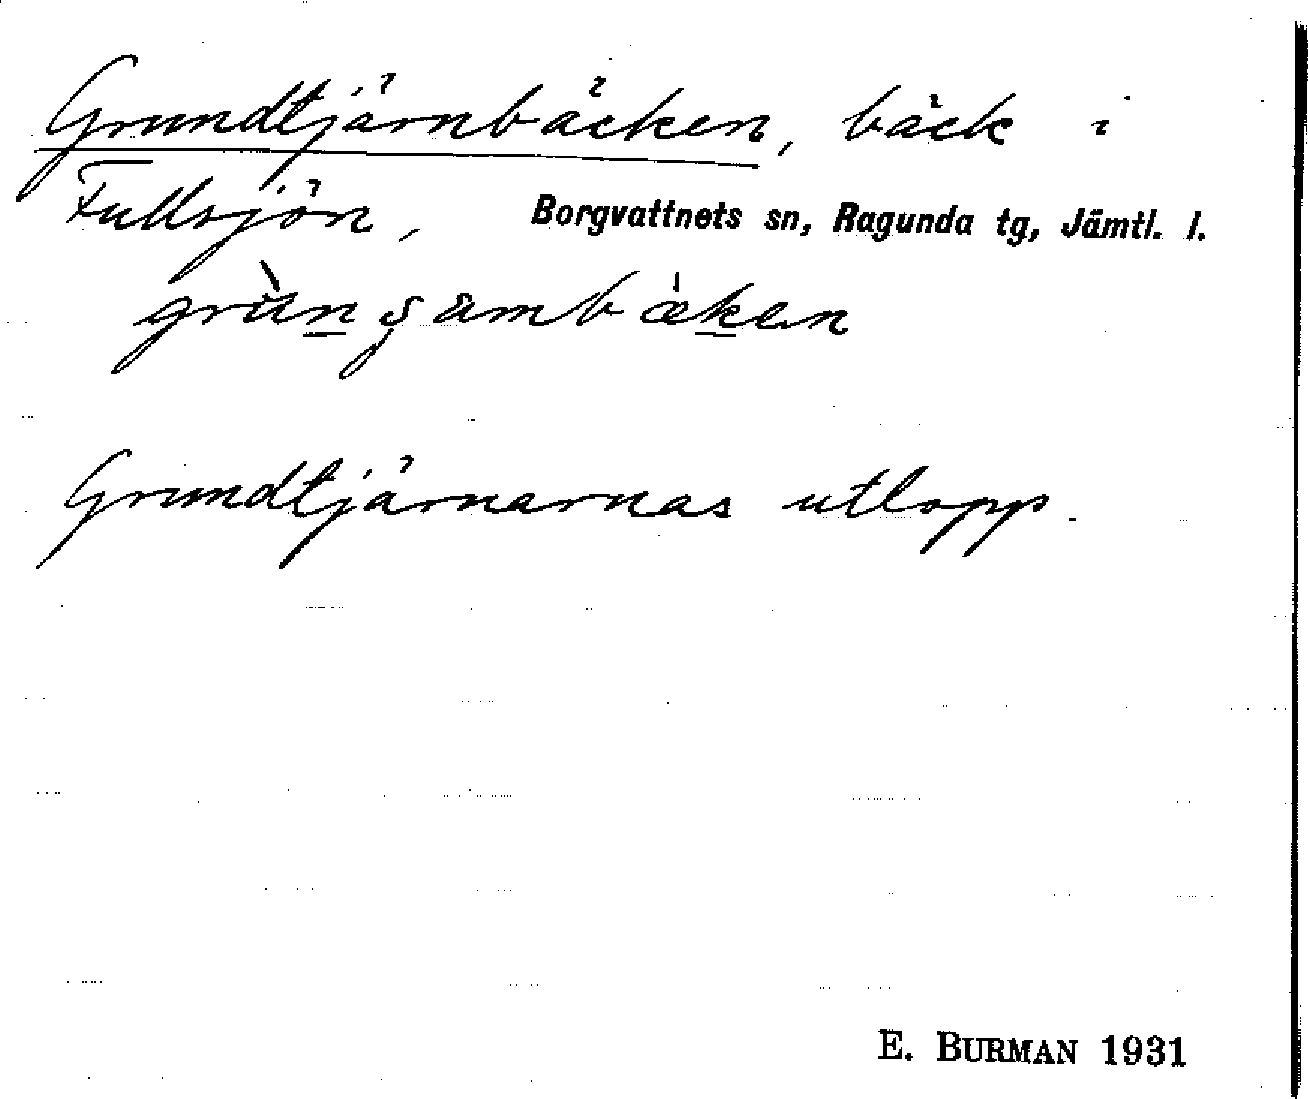 Grundtjärnbäcken, bäck i
Fullsjön, Borgvattnets sn, Ragunda tg, Jämtl. l.
grùn̲ʂambæˈk̲en
Grundtjärnarnas utlopp.
E. BURMAN 1931